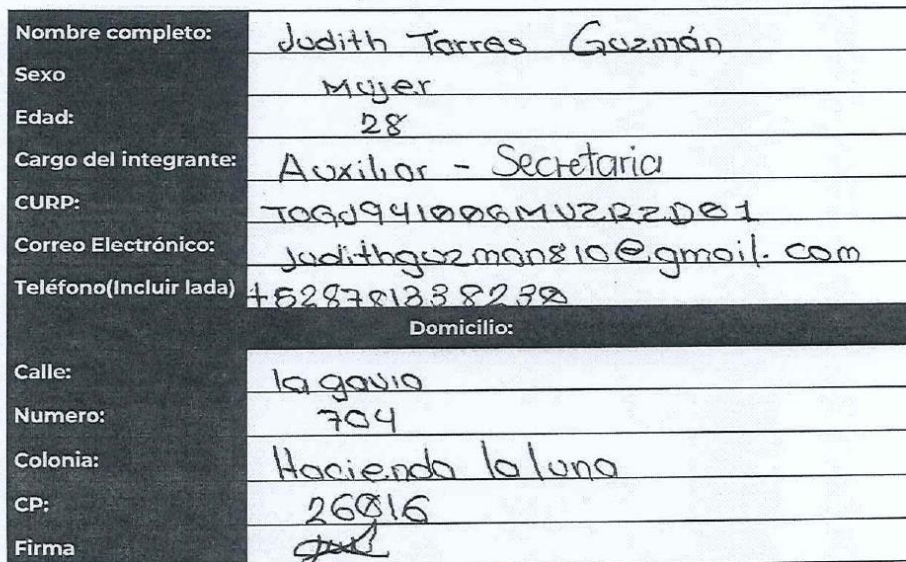 Nombre completo: Judith Torres Guzmán
Sexo Mujer
Edad: 28
Cargo del integrante: Auxiliar - Secretaria
CURP: TOGJ941006MVZRZD01
Correo Electrónico: Judithguzman810@gmail.com
Teléfono(Incluir lada) +528781338230
Domicilio:
Calle: la gavia
Numero: 704
Colonia: Hacienda la luna
CP: 26016
Firma